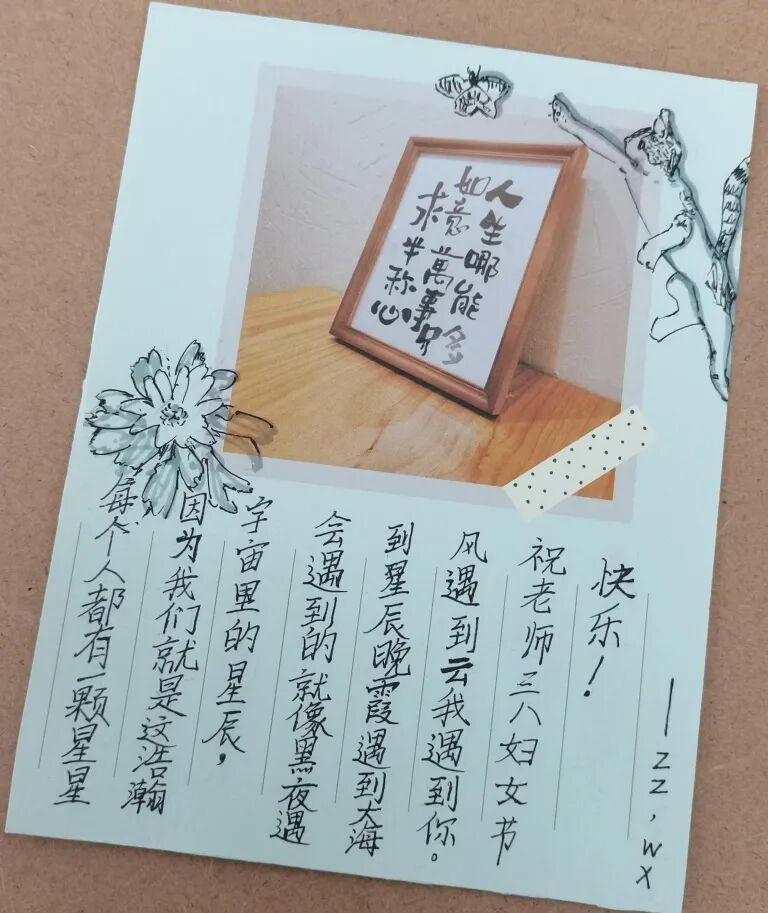 人生哪能多
如意萬事只
求半称心
每个人都有一颗星星
因为我们就是这浩瀚
宇宙里的星辰，
会遇到的就像黑夜遇
到星辰晚霞遇到大海
风遇到云我遇到你。
祝老师三八妇女节
快乐！
—zz，wx